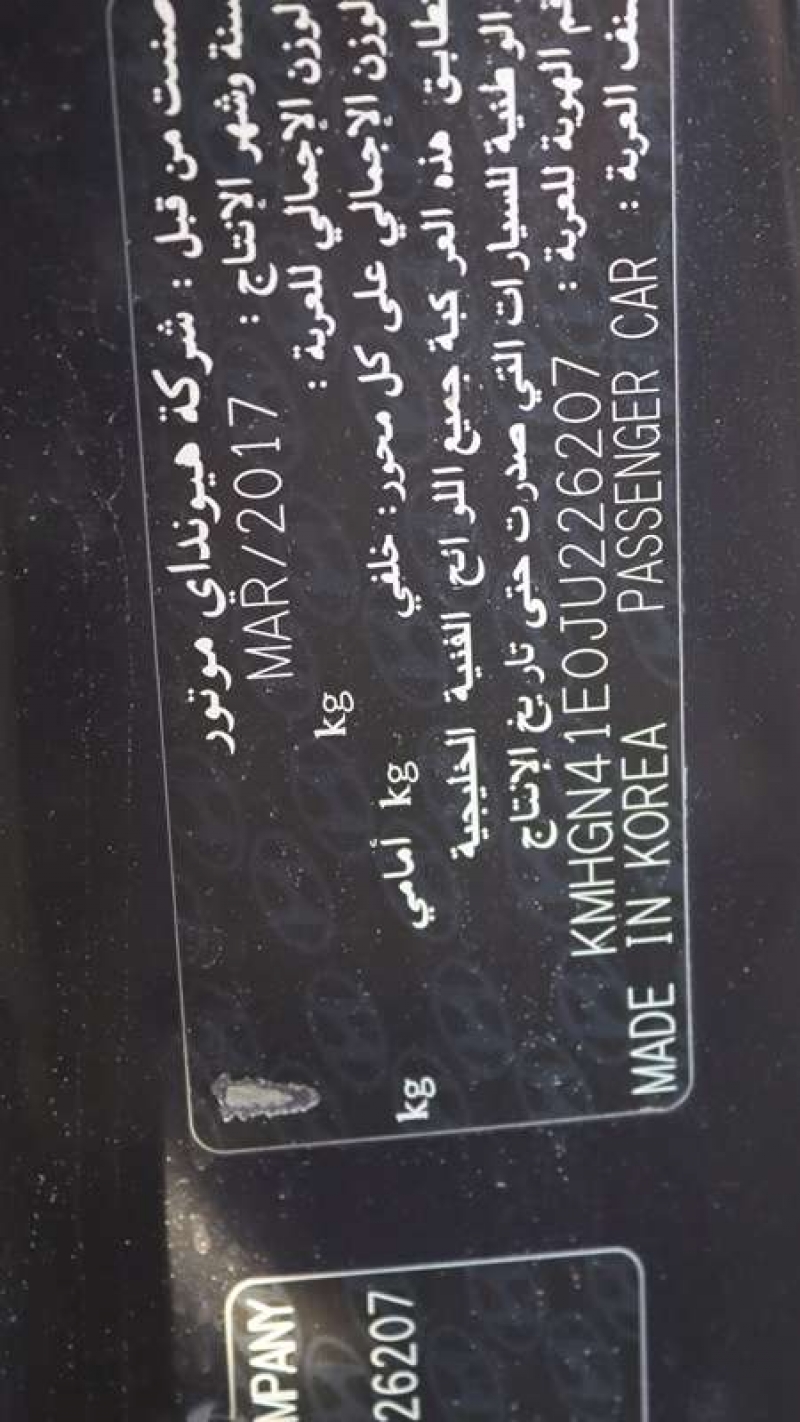 صنعت من قبل : شركة هيونداي موتور
سنة وشهر الإنتاج : MAR/2017
الوزن الإجمالي للعربة : kg
الوزن الإجمالي على كل محور: خلفي kg أمامي kg
تطابق هذه العركبة جميع اللوائح الفنية الخليجية
الوطنية للسيارات التي صدرت حتى تاريخ الإنتاج
رقم الهوية للعربة : KMHGN41E0JU226207
صنف العربة : PASSENGER CAR MADE IN KOREA
MPANY
26207